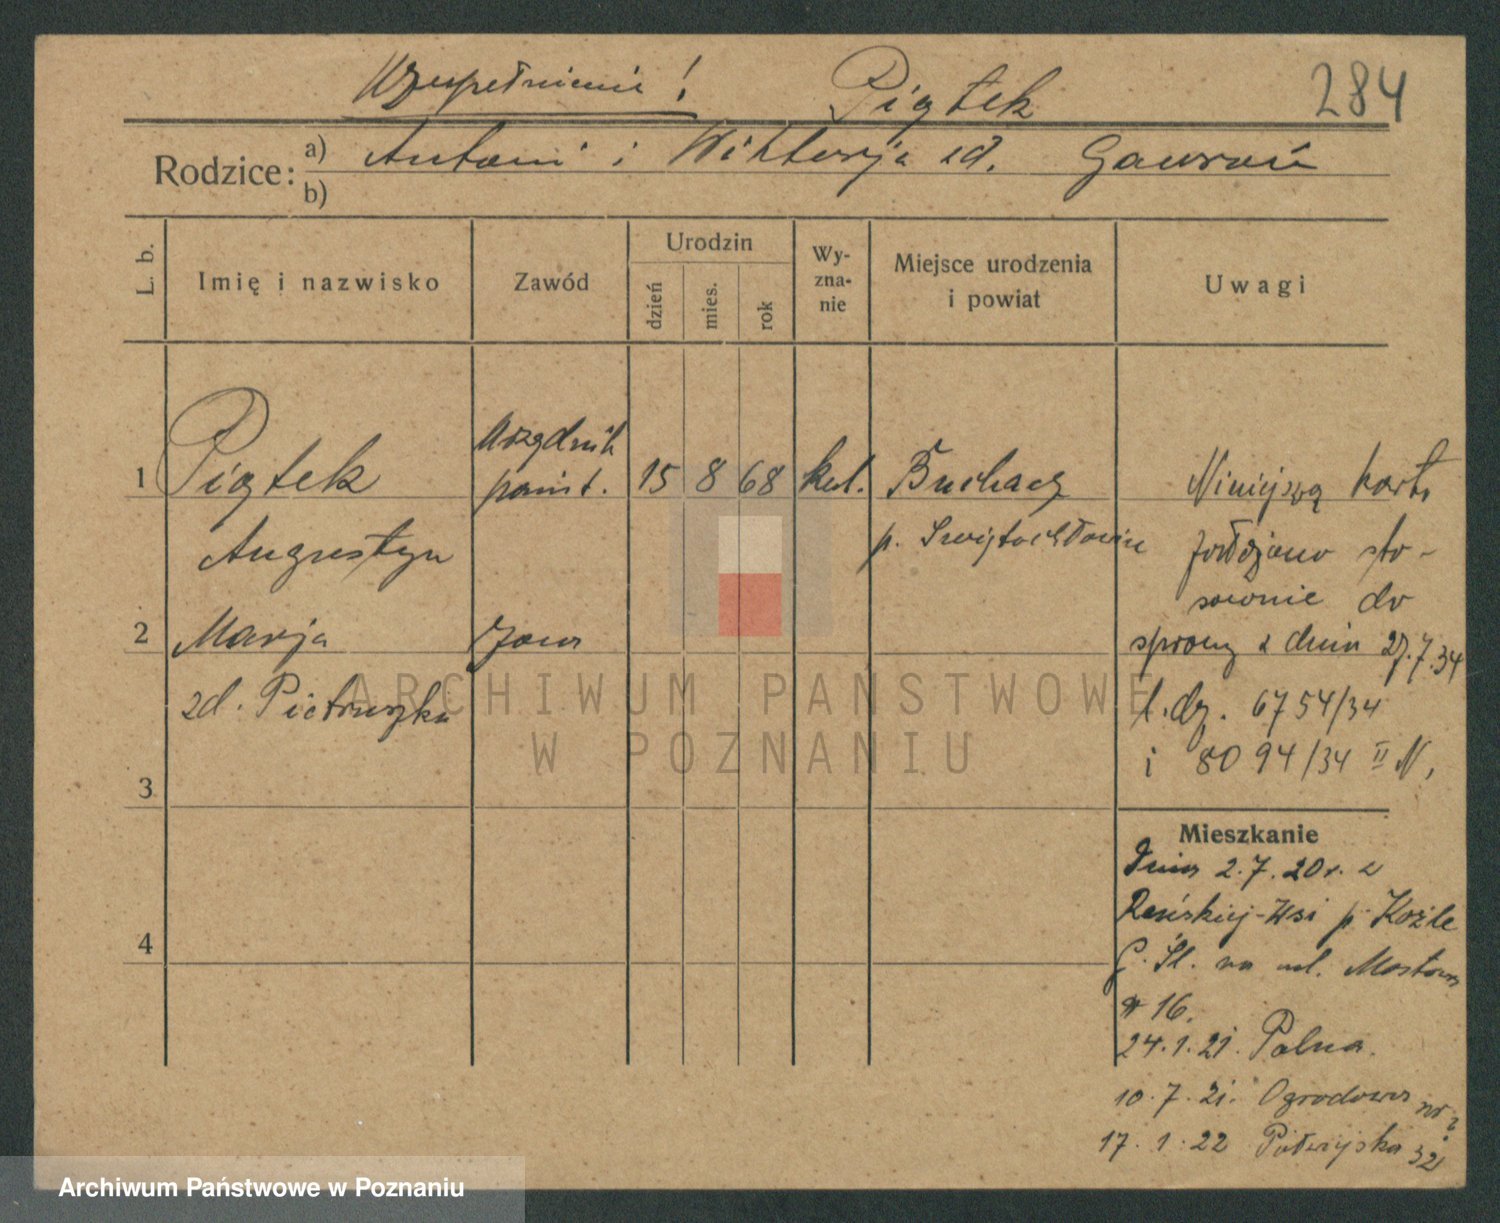 Uzupełnienie! Piątek 284
Rodzice: a) Antoni i Wiktorja zd. Gawroń
b)
L. b. Imię i nazwisko Zawód Urodzin dzień mies. rok Wy-zna-nie Miejsce urodzenia i powiat Uwagi
1 Piątek urzędnik państ. 15 8 68 kat. Buchacz Niniejszą kartę
Augustyn p. Świętochłowice założono sto-
sownie do
2 Marja żona sprawy z dnia 27.7.34
zd. Pietruszka l. dz. 6754/34
i 8094/34 II N,
3
Mieszkanie
Dnia 2.7.20 r. z
Reńskiej-Wsi p. Koźle
G. Śl. na ul. Mostowa
16.
4
24.1.21. Polna.
10.7.21. Ogrodowa nr
17.1.22 Półwiejska 32
ARCHIWUM PAŃSTWOWE
W POZNANIU
Archiwum Państwowe w Poznaniu